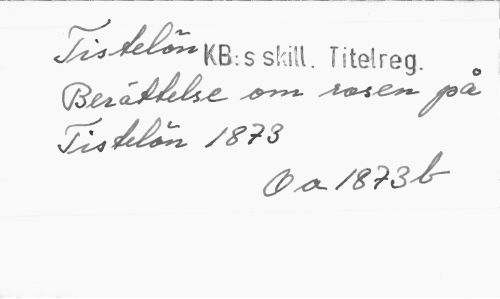 Tistelön KB:s skill. Titelreg.
Berättelse om rosen på
Tistelön 1873
Oa 1873b